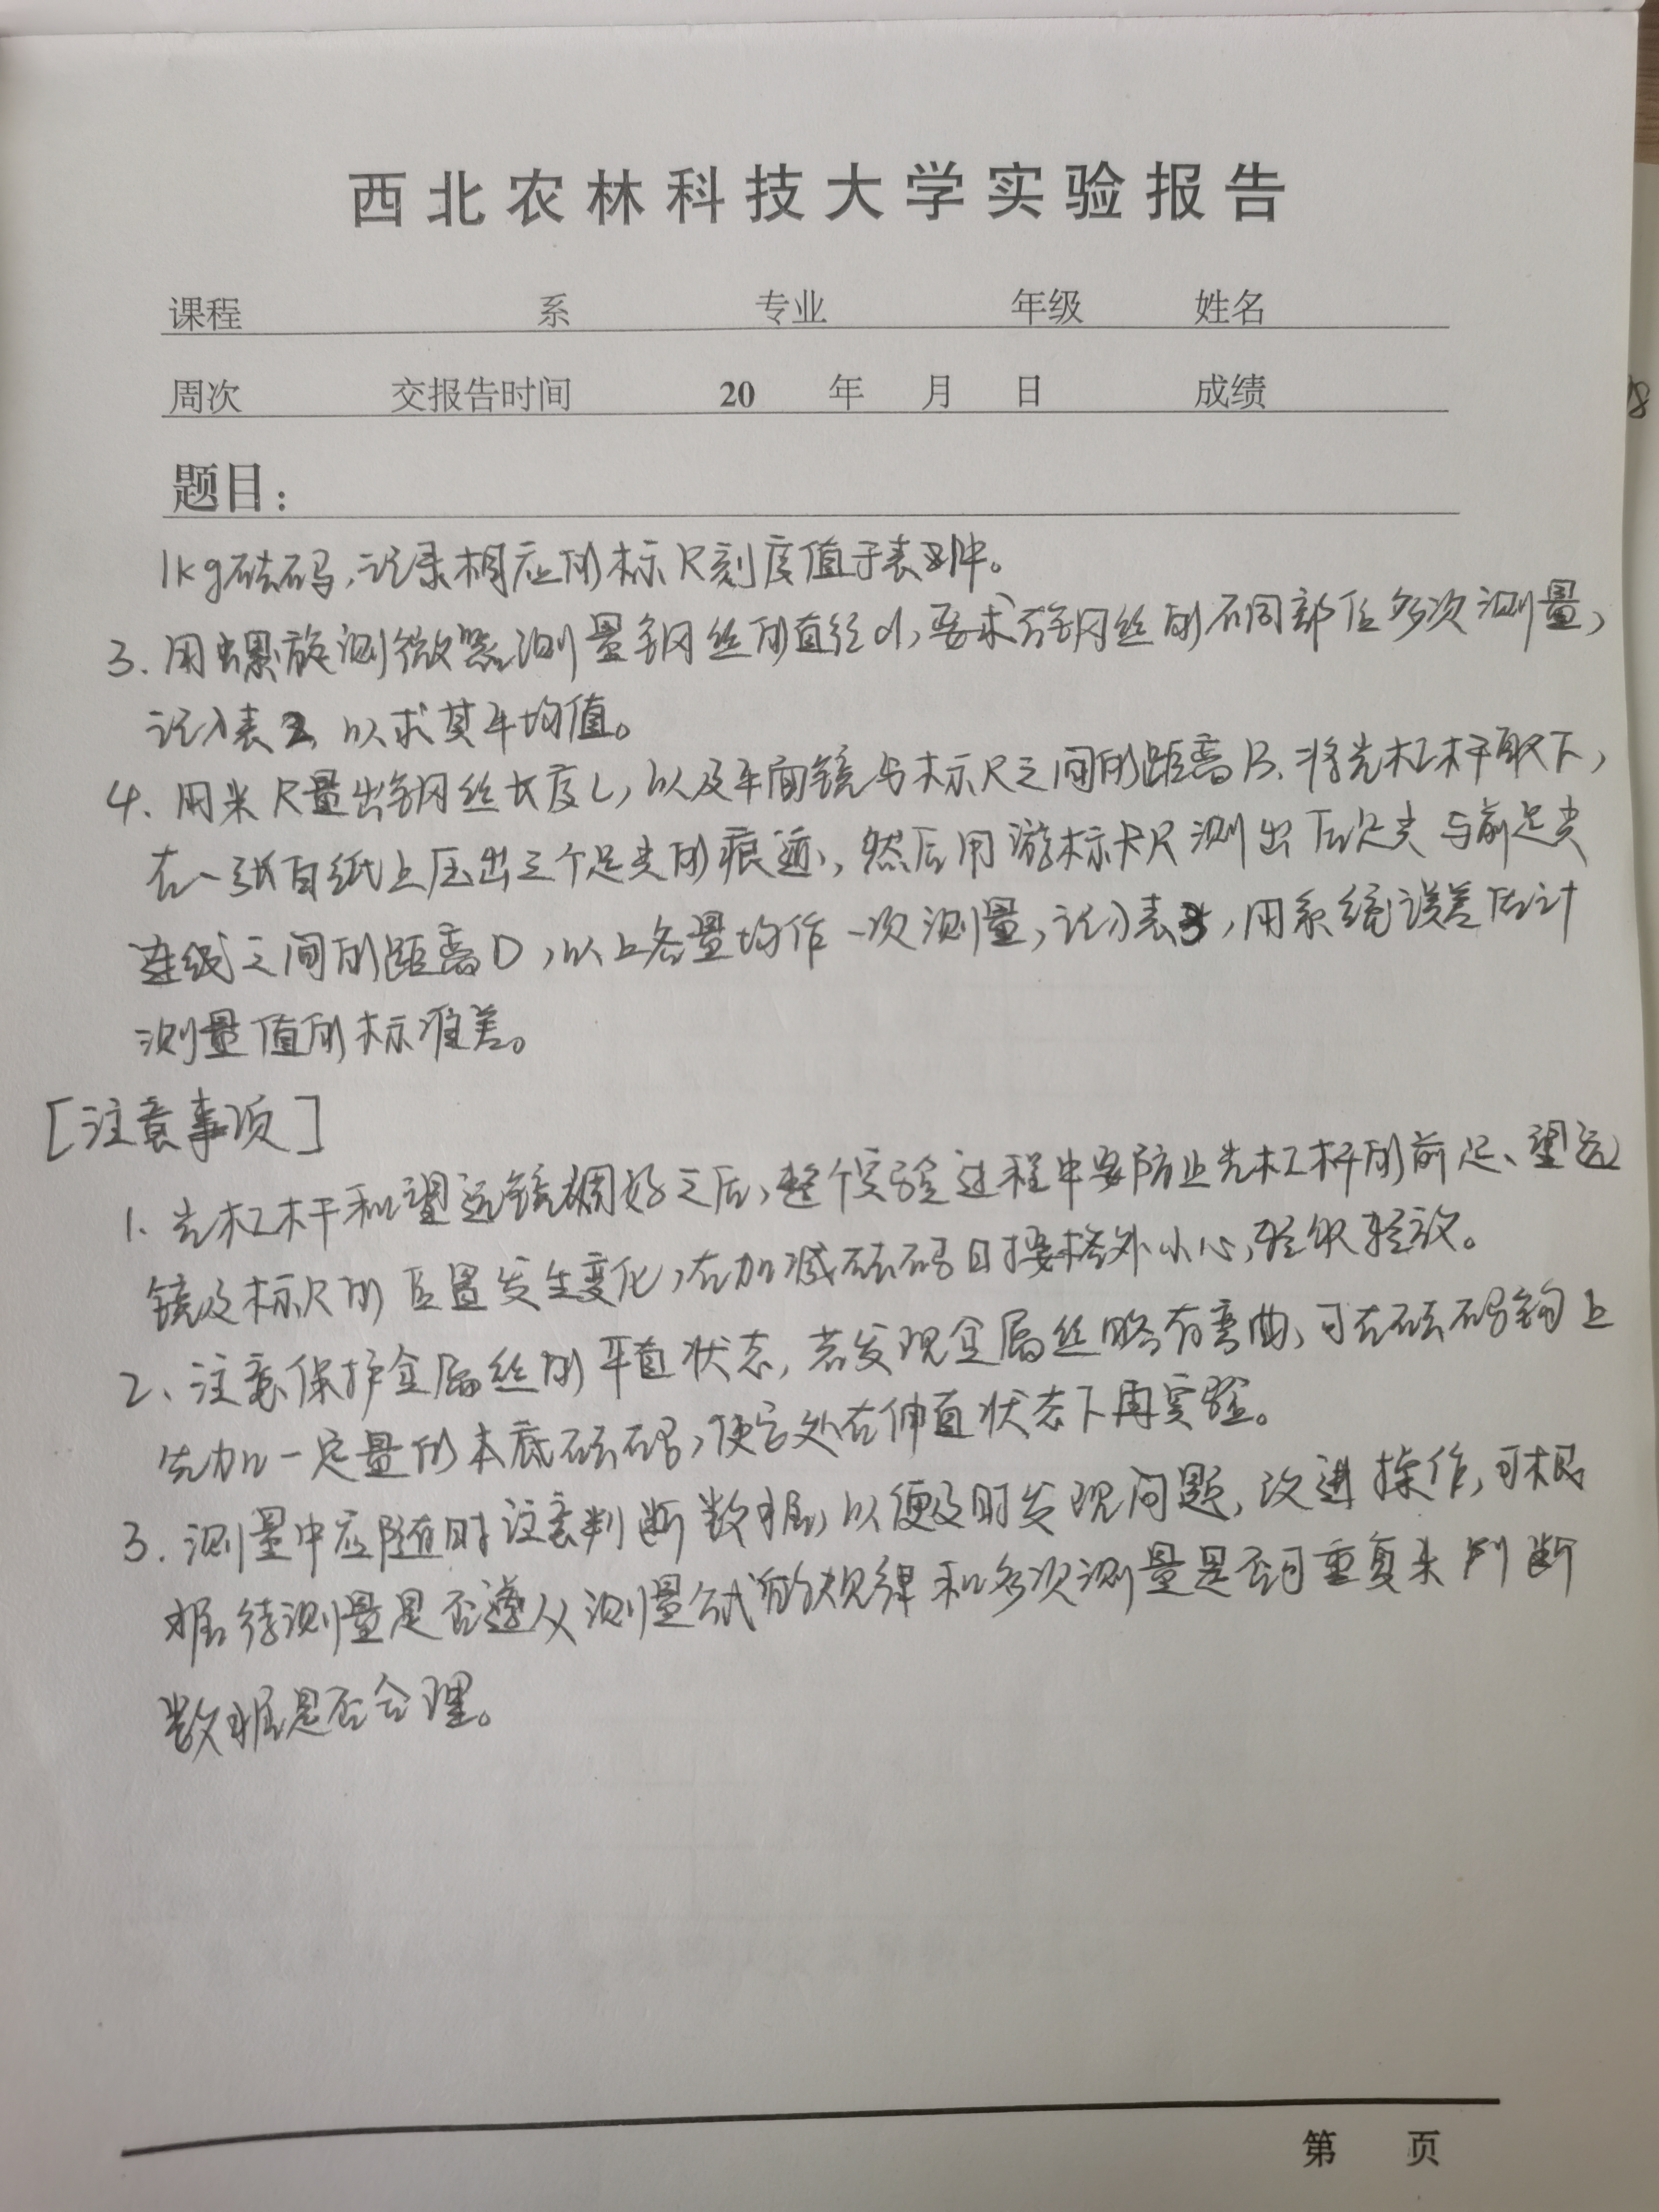 西北农林科技大学实验报告
课程 系 专业 年级 姓名
周次 交报告时间 20 年 月 日 成绩
题目：
1kg砝码，记录相应的标尺刻度值于表1中。
3. 用螺旋测微器测量钢丝的直径d，要求在钢丝的不同部位多次测量，
记入表2，以求其平均值。
4. 用米尺量出钢丝长度L，以及平面镜与标尺之间的距离B. 将光杠杆取下，
在一张白纸上压出三个足尖的痕迹，然后用游标卡尺测出后足尖与前足尖
连线之间的距离D，以上各量均作一次测量，记入表3，用系统误差估计
测量值的标准差。
[注意事项]
1. 光杠杆和望远镜调好之后，整个实验过程中要防止光杠杆的前足、望远
镜及标尺的位置发生变化，在加减砝码时要格外小心，轻取轻放。
2、注意保护金属丝的平直状态，若发现金属丝略有弯曲，可在砝码钩上
先加一定量的本底砝码，使它处在伸直状态下再实验。
3. 测量中应随时注意判断数据，以便及时发现问题，改进操作，可根
据待测量是否遵从测量公式的规律和多次测量是否可重复来判断
数据是否合理。
第 页